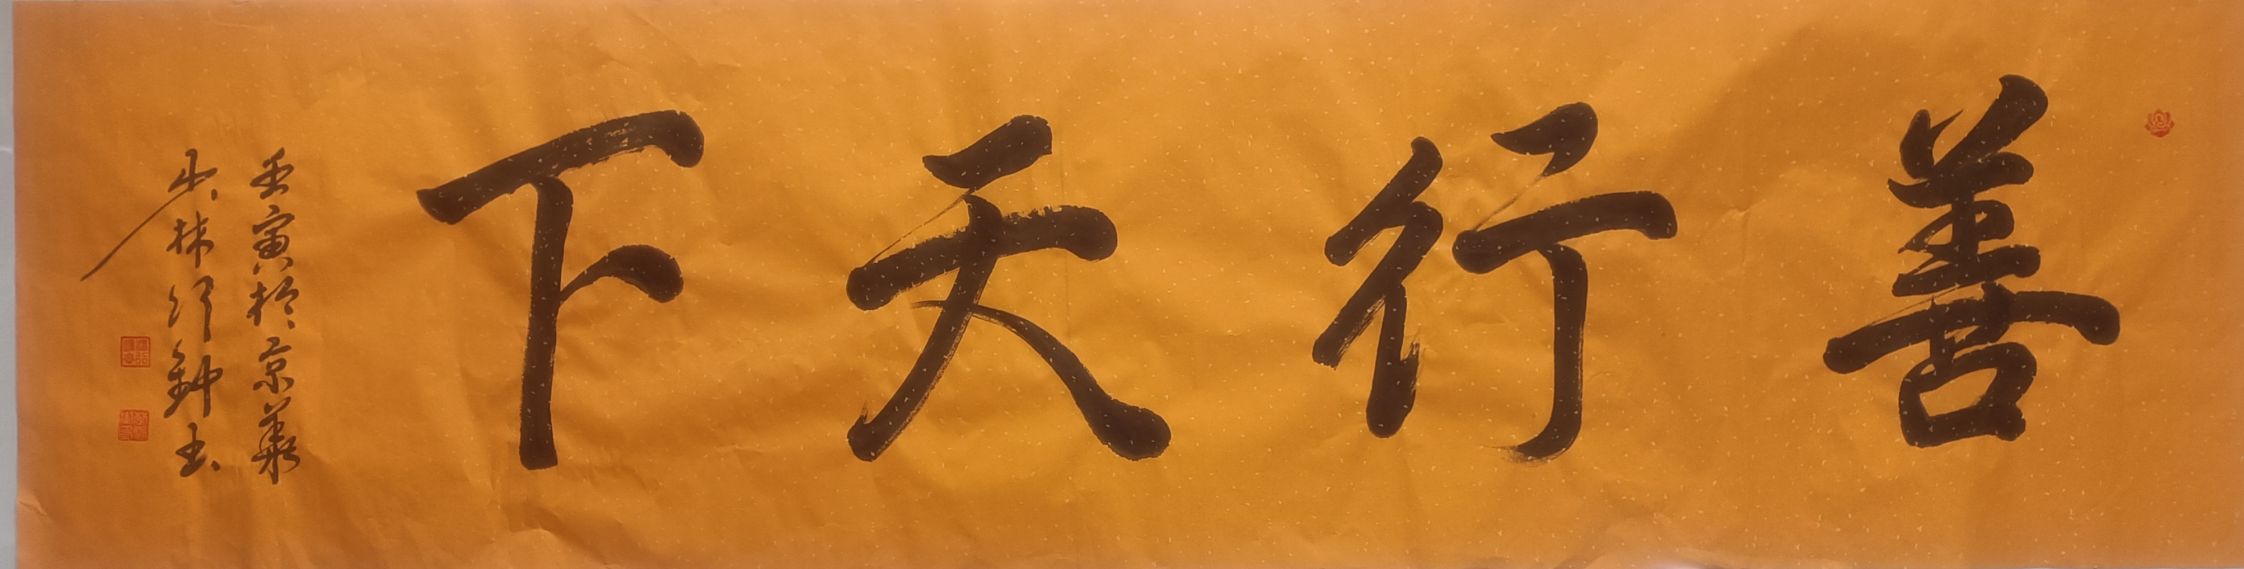 善行天下
壬寅於京華
少林行鉀书